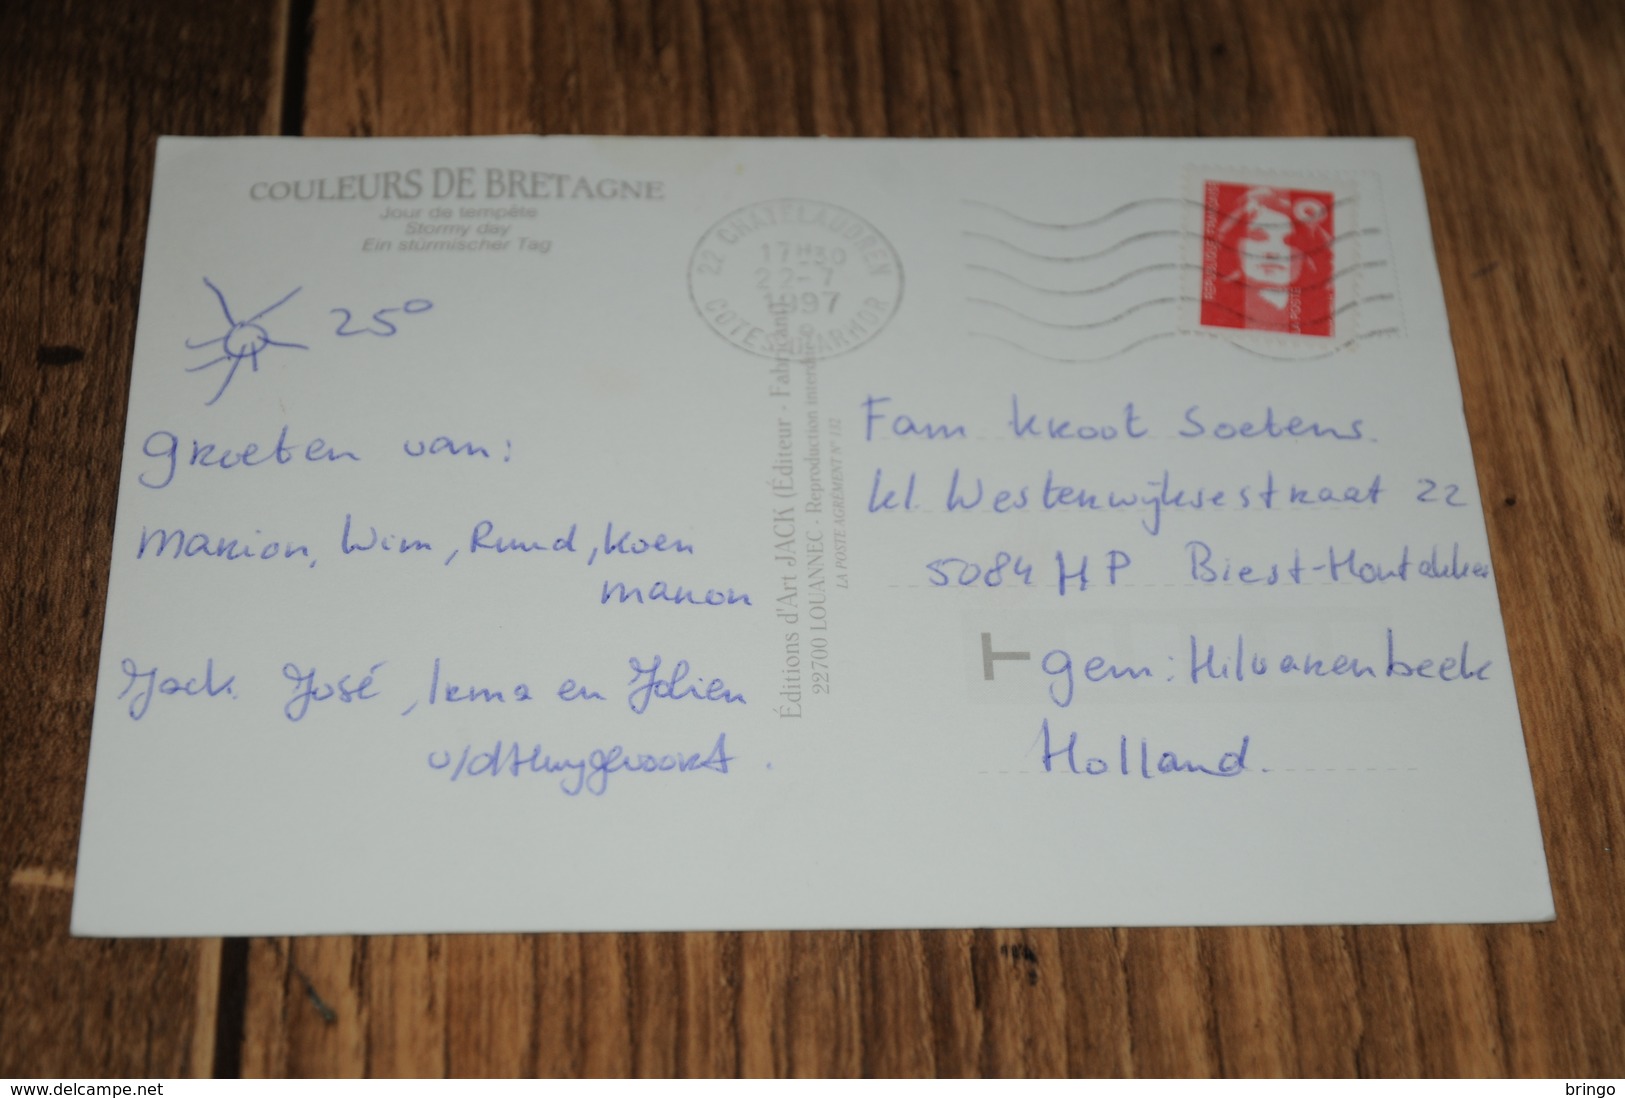 COULEURS DE BRETAGNE
Jour de tempête
Stormy day
Ein stürmischer Tag
25°
groeten van:
Marion, Wim, Ruud, Koen
Manon
Jack José, Irma en Jolien
v/d Huygevoort.
22 CHATELAUDREN
17H30
22-7
1997
COTES D'ARMOR
Éditions d'Art JACK (Éditeur - Fabricant)
22700 LOUANNEC - Reproduction interdite
LA POSTE AGRÉMENT N° 132
REPUBLIQUE FRANÇAISE
LA POSTE
Fam Kroot Soetens.
kl. Westerwijksestraat 22
5084 HP Biest-Houtakker
T gem: Hilvarenbeek
Holland.
delcampe.net
bringo